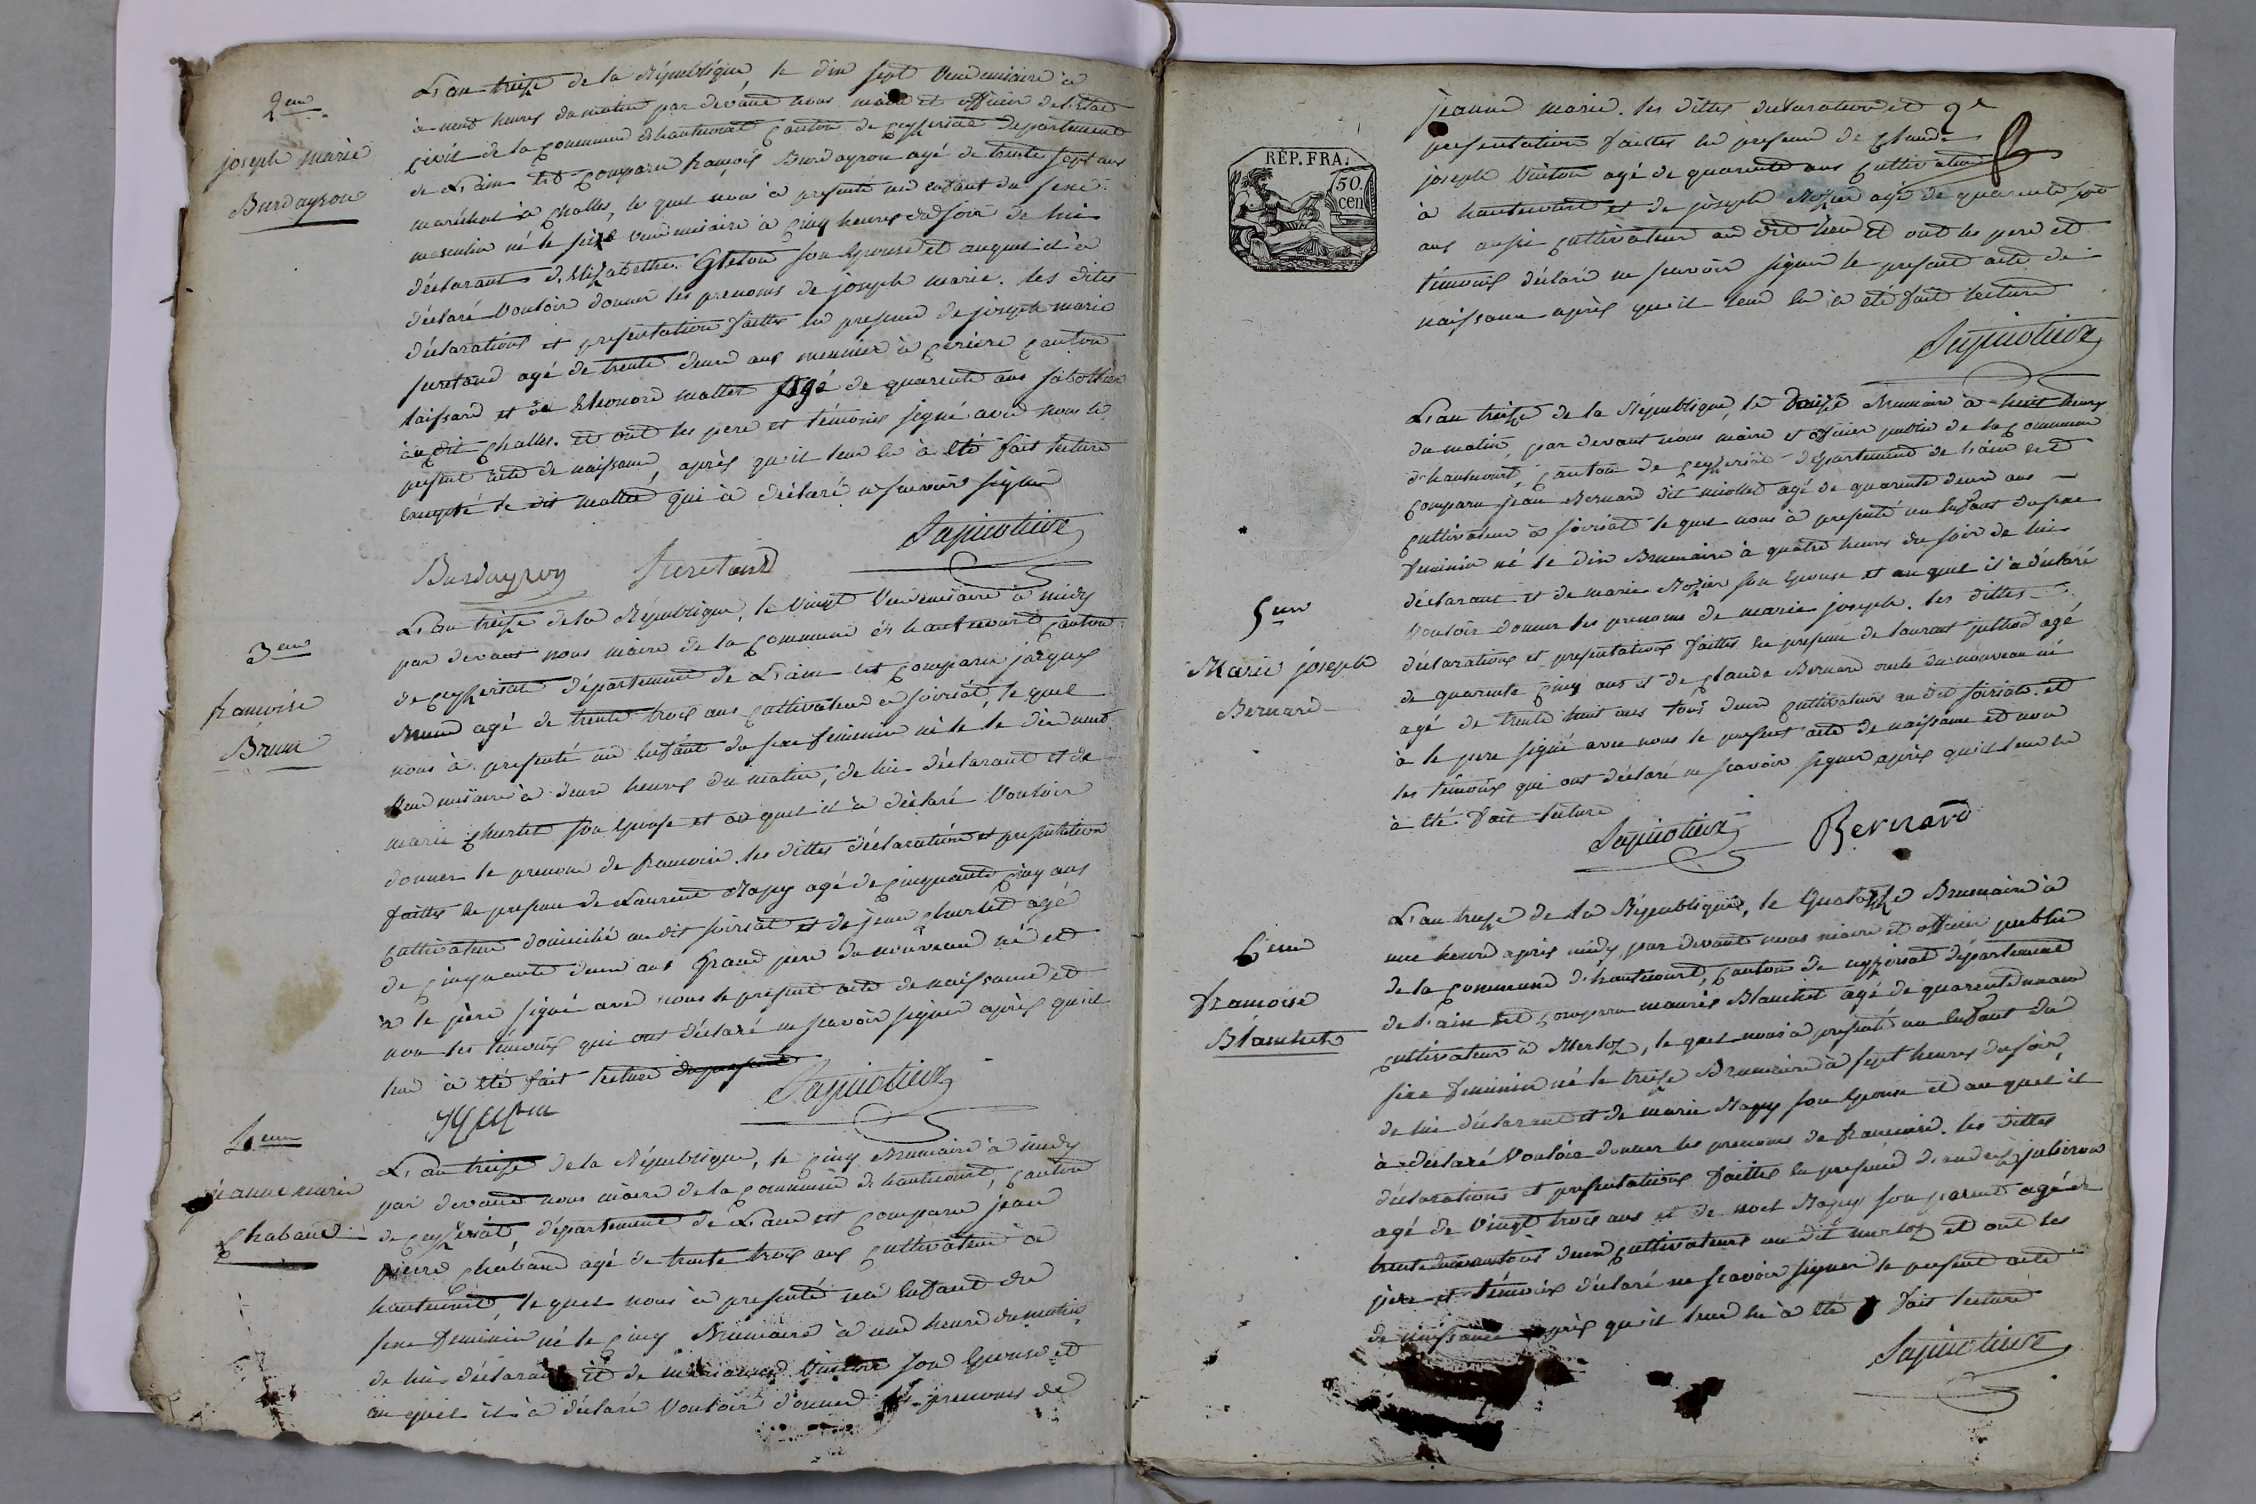 2eme
joseph marie
Burdayron
L'an treize de la République, le dix sept vendemiaire à
à neuf heures du matin par devant nous maire et officier de l'etat
civil de la commune d'hautecourt canton de ceyzeriat departement
de L'ain est comparu françois Burdayron agé de trente sept ans
maréchal à challes, le quel nous à presenté un enfant du sexe
masculin né le seize vendemiaire à cinq heures du soir de lui
déclarant et d'Elizabethe son Epouse et auquel il à
déclaré vouloir donner les prenoms de joseph marie. les dites
déclarations et presentation faittes en presence de joseph marie
juretand agé de trente deux ans meunier à canton
et de Eleonord mallet agé de quarente ans
au dit challes. et ont les pere et témoins signé avec nous le
present acte de naissance, après qu'il leur en à eté fait lecture
excepté le dit mallet qui à déclaré ne scavoir signer
Burdayron Juretand
3eme
francoise
Brun
L'an treize de la République, le vingt vendemiaire à midy
par devant nous maire de la commune d'hautecourt canton
de ceyzeriat département de L'ain est comparu jacques
Brun agé de trente trois ans cultivateur à soiriat, le quel
nous à presenté un enfant du sexe feminin né le dix neuf
vendemiaire à deux heures du matin, de lui déclarant et de
marie churlet son Epouse et au quel il à déclaré vouloir
donner le prenom de francoise. les dittes déclaration et presentation
faittes en presence de Laurent Mapy agé de cinquante cinq ans
cultivateur domicilié au dit soiriat et de jean churlet agé
de cinquante deux ans grand pere du nouveau né et
à le père signé avec nous le present acte de naissance et
non les témoins qui ont déclaré ne scavoir signer après qu'il
leur à eté fait lecture
4eme
jeanne marie
Chaband
L'an treize de la République, le cinq Brumaire à midy
par devant nous maire de la commune d'hautecourt, canton
de ceyzeriat, département de L'ain est comparu jean
pierre chaband agé de trente trois ans cultivateur à
hautecourt, le quel nous à presenté un enfant du
sexe feminin né le cinq Brumaire à une heure du matin,
de lui déclarant et de mariaune son Epouse et
au quel il à déclaré vouloir donner les prenoms de
RÉP. FRA.
50.
cen
jeanne marie. les dittes declaration et
presentation faittes en presence de Claude
joseph agé de quarente ans cultivateur
à hautecourt et de joseph agé de quarente sept
ans aussi cultivateur au dit lieu et ont les pere et
témoins déclaré ne scavoir signer le present acte de
naissance après qu'il leur en à eté fait lecture
5eme
Marie joseph
Bernard
L'an treize de la République, le Brumaire à huit heures
du matin, par devant nous maire et officier public de la commune
d'hautecourt, canton de ceyzeriat département de l'ain est
comparu jean Bernard dit agé de quarente deux ans
cultivateur à soiriat le quel nous à presenté un Enfant du sexe
feminin né le dix Brumaire à quatre heures du soir de lui
déclarant et de marie son Epouse et au quel il à déclaré
vouloir donner les prenoms de marie joseph. les dittes
déclarations et presentations faittes en presence de laurent agé
de quarente cinq ans et de claude Bernard oncle du nouveau né
agé de trente huit ans tous deux cultivateurs au dit soiriat. et
à le pere signé avec nous le present acte de naissance et non
les témoins qui ont déclaré ne scavoir signer après qu'il leur en
à eté fait lecture
Bernard
6eme
francoise
Blanchet
L'an treize de la République, le quatorze Brumaire à
une heure après midy par devant nous maire et officier public
de la commune d'hautecourt, canton de ceyzeriat département
de l'ain est comparu maurie Blanchet agé de quarente
cultivateur à Merloz, le quel nous à presenté un Enfant du
sexe feminin né le treize Brumaire à sept heures du soir,
de lui déclarant et de marie Mapy son Epouse et au quel il
à déclaré vouloir donner les prenoms de francoise. les dittes
déclarations et presentations faittes en presence d'andré
agé de vingt trois ans et de noel Mapy son parent agé de
deux cultivateurs au dit merloz et ont les
pere et témoins déclaré ne scavoir signer le present acte
de naissance après qu'il leur en à eté fait lecture